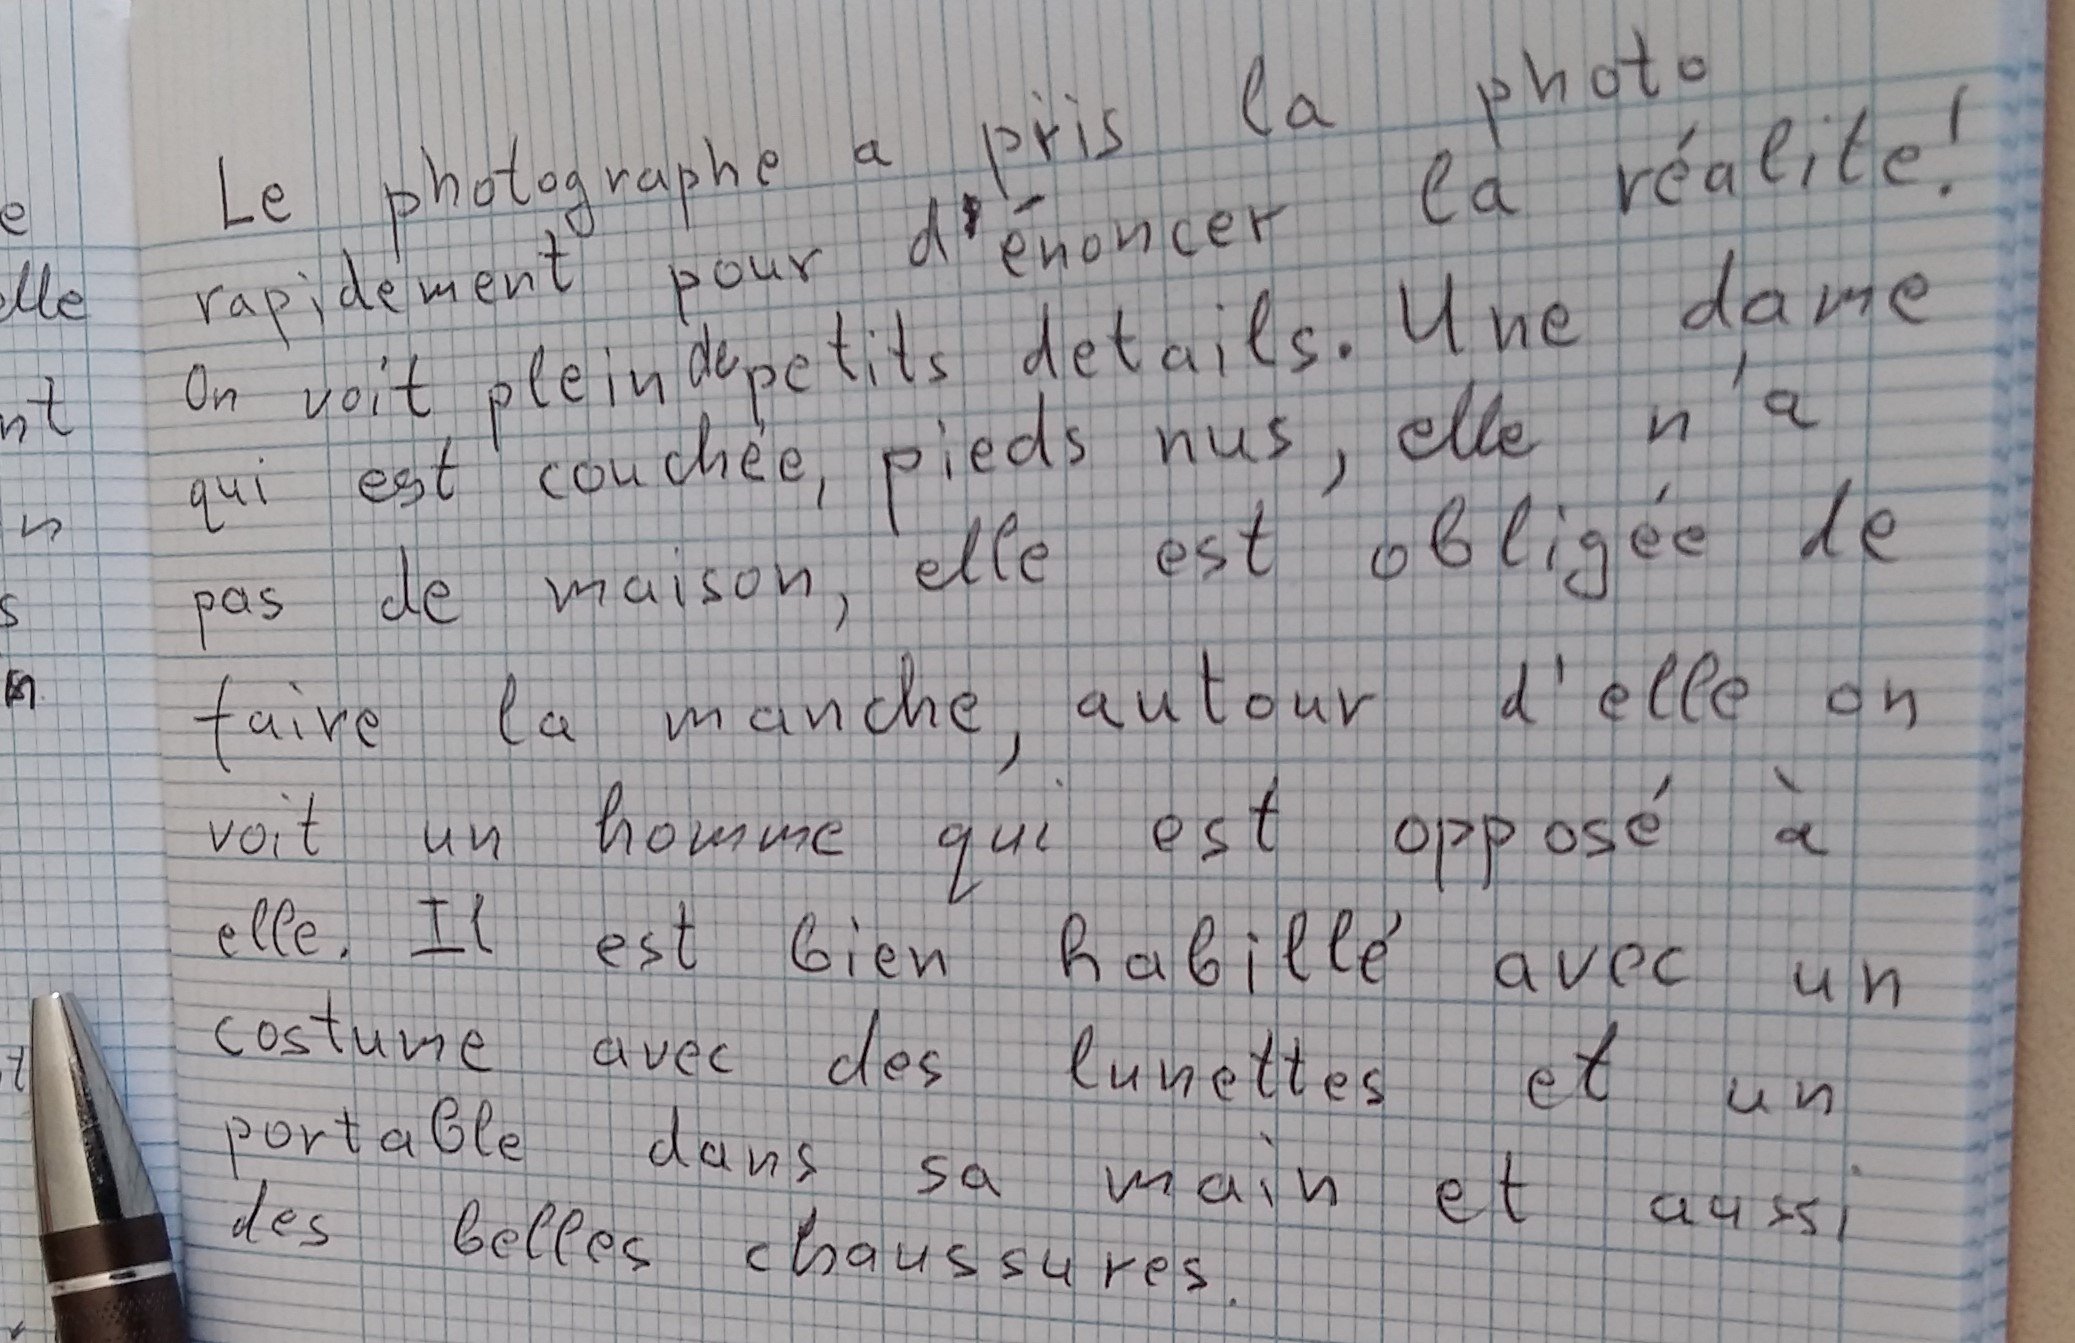 Le photographe a pris la photo
rapidement pour d'énoncer la réalite!
On voit plein de petits details. Une dame
qui est couchée, pieds nus, elle n'a
pas de maison, elle est obligée de
faire la manche, autour d'elle on
voit un homme qui est opposé à
elle. Il est bien habillé avec un
costume avec des lunettes et un
portable dans sa main et aussi
des belles chaussures.